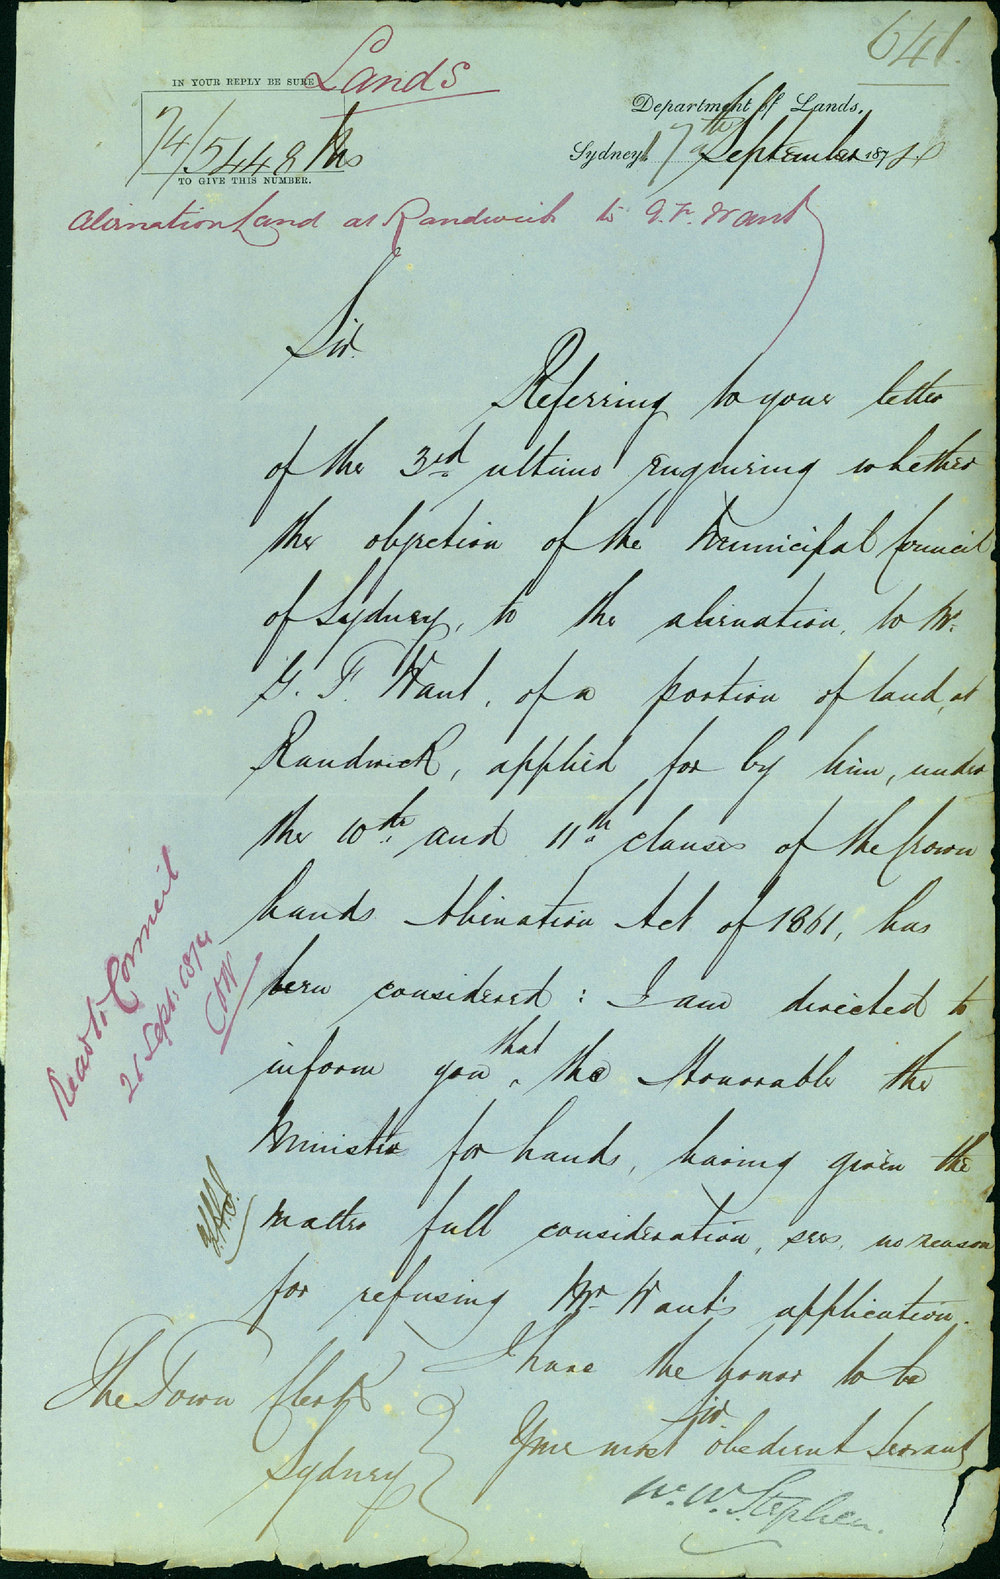 641.
Lands
IN YOUR REPLY BE SURE
74/5448 Ms
TO GIVE THIS NUMBER.
Department of Lands,
Sydney 17th September 1874
Alienation Land at Randwick to G. F. Want
Sir.
Referring to your letter
of the 3rd ultimo enquiring whether
the objection of the Municipal Council
of Sydney, to the alienation, to Mr.
G. F. Want, of a portion of land, at
Randwick, applied for by him, under
the 10th and 11th clauses of the Crown
Lands Alienation Act of 1861, has
been considered: I am directed to
inform you that the Honorable the
Minister for Lands, having given the
matter full consideration, sees no reason
for refusing Mr Want's application.
I have the honor to be
Sir.
Your most obedient Servant
W. W. Stephen.
The Town Clerk
Sydney
Read to Council
21 Sept. 1874